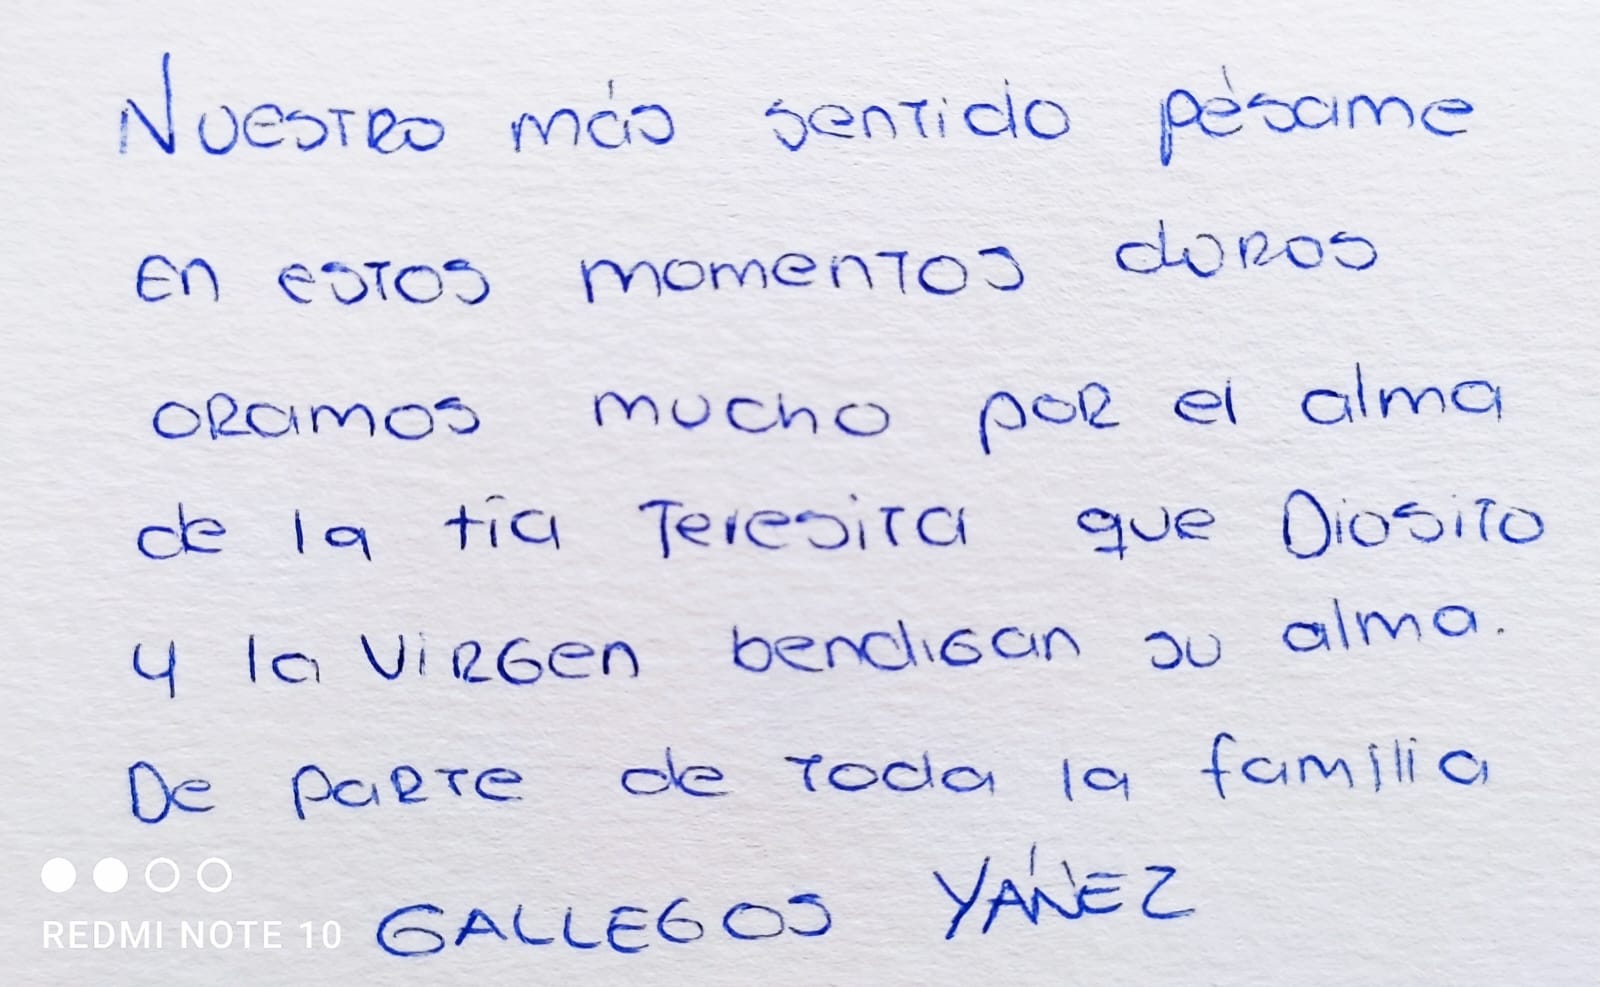 Nuestro más sentido pésame
En estos momentos duros
oramos mucho por el alma
de la tía Teresita que Diosito
y la Virgen bendigan su alma.
De parte de toda la familia
GALLEGOS YÁÑEZ
REDMI NOTE 10